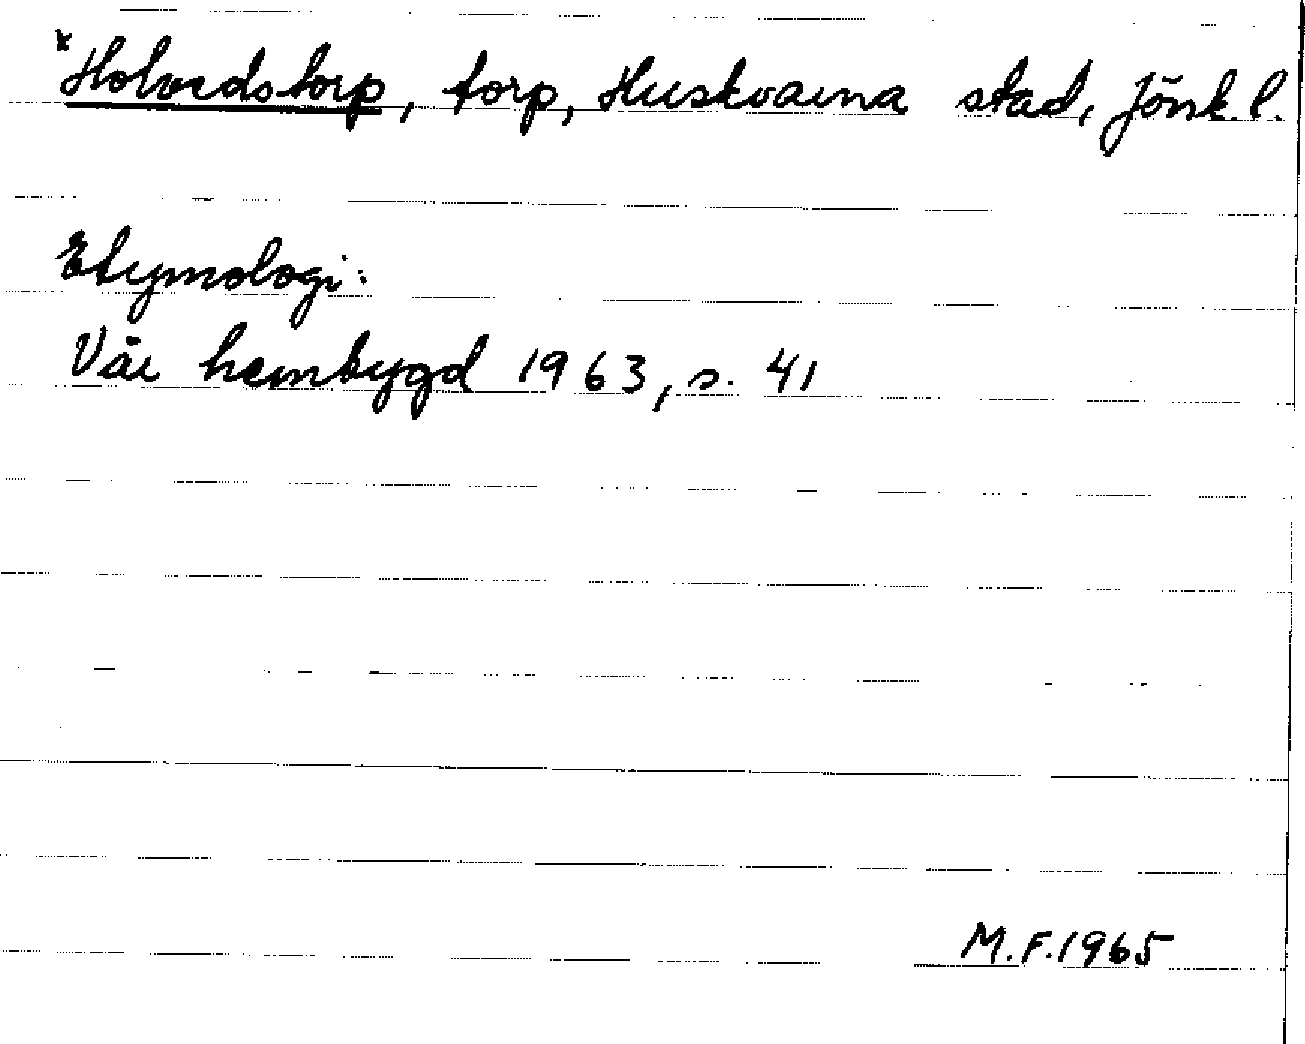 *Holvedstorp, torp, Huskvarna stad, Jönk. l.
Etymologi:
Vår hembygd 1963, s. 41
M.F. 1965